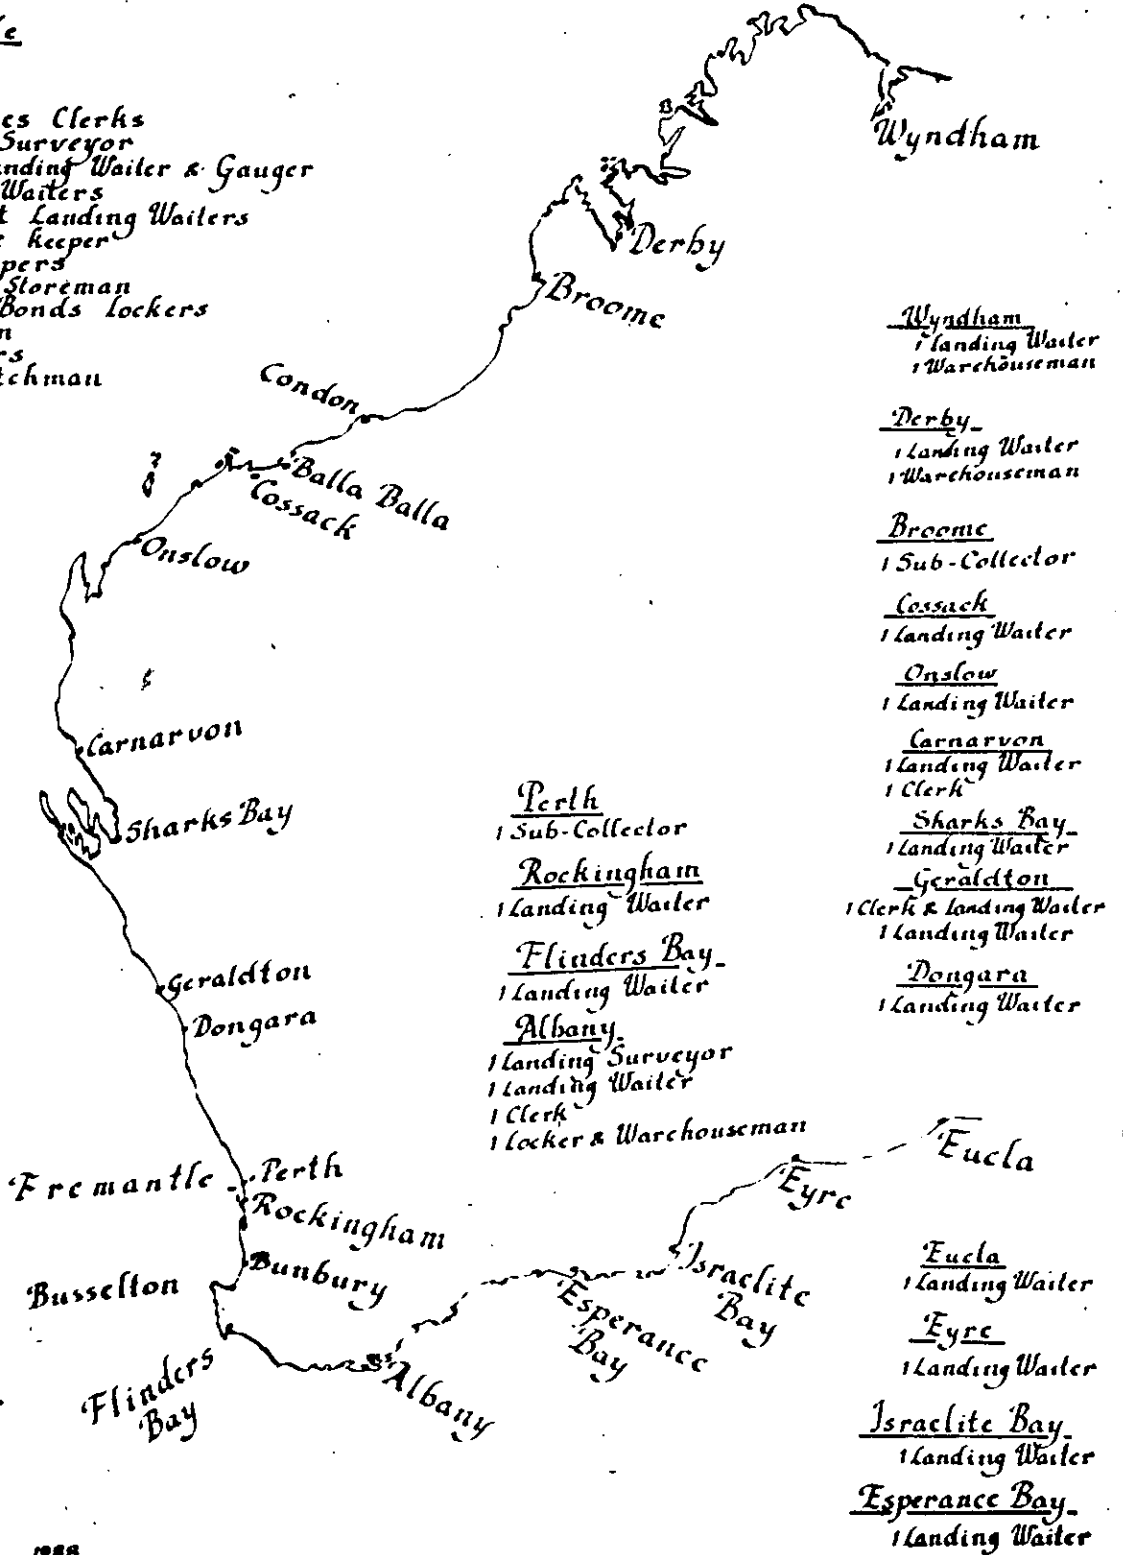 es Clerks
Surveyor
nding Waiter & Gauger
Waiters
t Landing Waiters
keeper
pers
Storeman
Bonds Lockers
n
rs
tchman
Wyndham
Derby
Broome
Condon
Balla Balla
Cossack
Onslow
Carnarvon
Sharks Bay
Geraldton
Dongara
Fremantle
Perth
Rockingham
Bunbury
Busselton
Flinders
Bay
Albany
Esperance
Bay
Israelite
Bay
Eyre
Eucla
Perth
1 Sub-Collector
Rockingham
1 Landing Waiter
Flinders Bay
1 Landing Waiter
Albany
1 Landing Surveyor
1 Landing Waiter
1 Clerk
1 Locker & Warehouseman
Wyndham
1 Landing Waiter
1 Warehouseman
Derby
1 Landing Waiter
1 Warehouseman
Broome
1 Sub-Collector
Cossack
1 Landing Waiter
Onslow
1 Landing Waiter
Carnarvon
1 Landing Waiter
1 Clerk
Sharks Bay
1 Landing Waiter
Geraldton
1 Clerk & Landing Waiter
1 Landing Waiter
Dongara
1 Landing Waiter
Eucla
1 Landing Waiter
Eyre
1 Landing Waiter
Israelite Bay
1 Landing Waiter
Esperance Bay
1 Landing Waiter